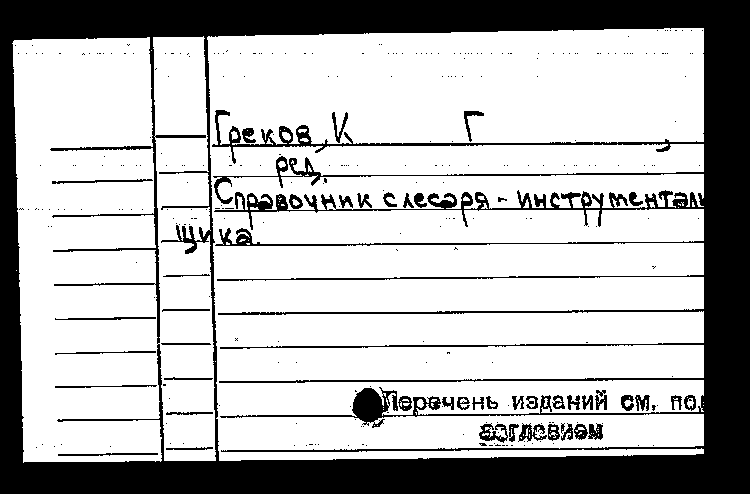 Греков, К Г ,
ред.
Справочник слесаря - инструментали
щика.
Перечень изданий см. под
заглавием